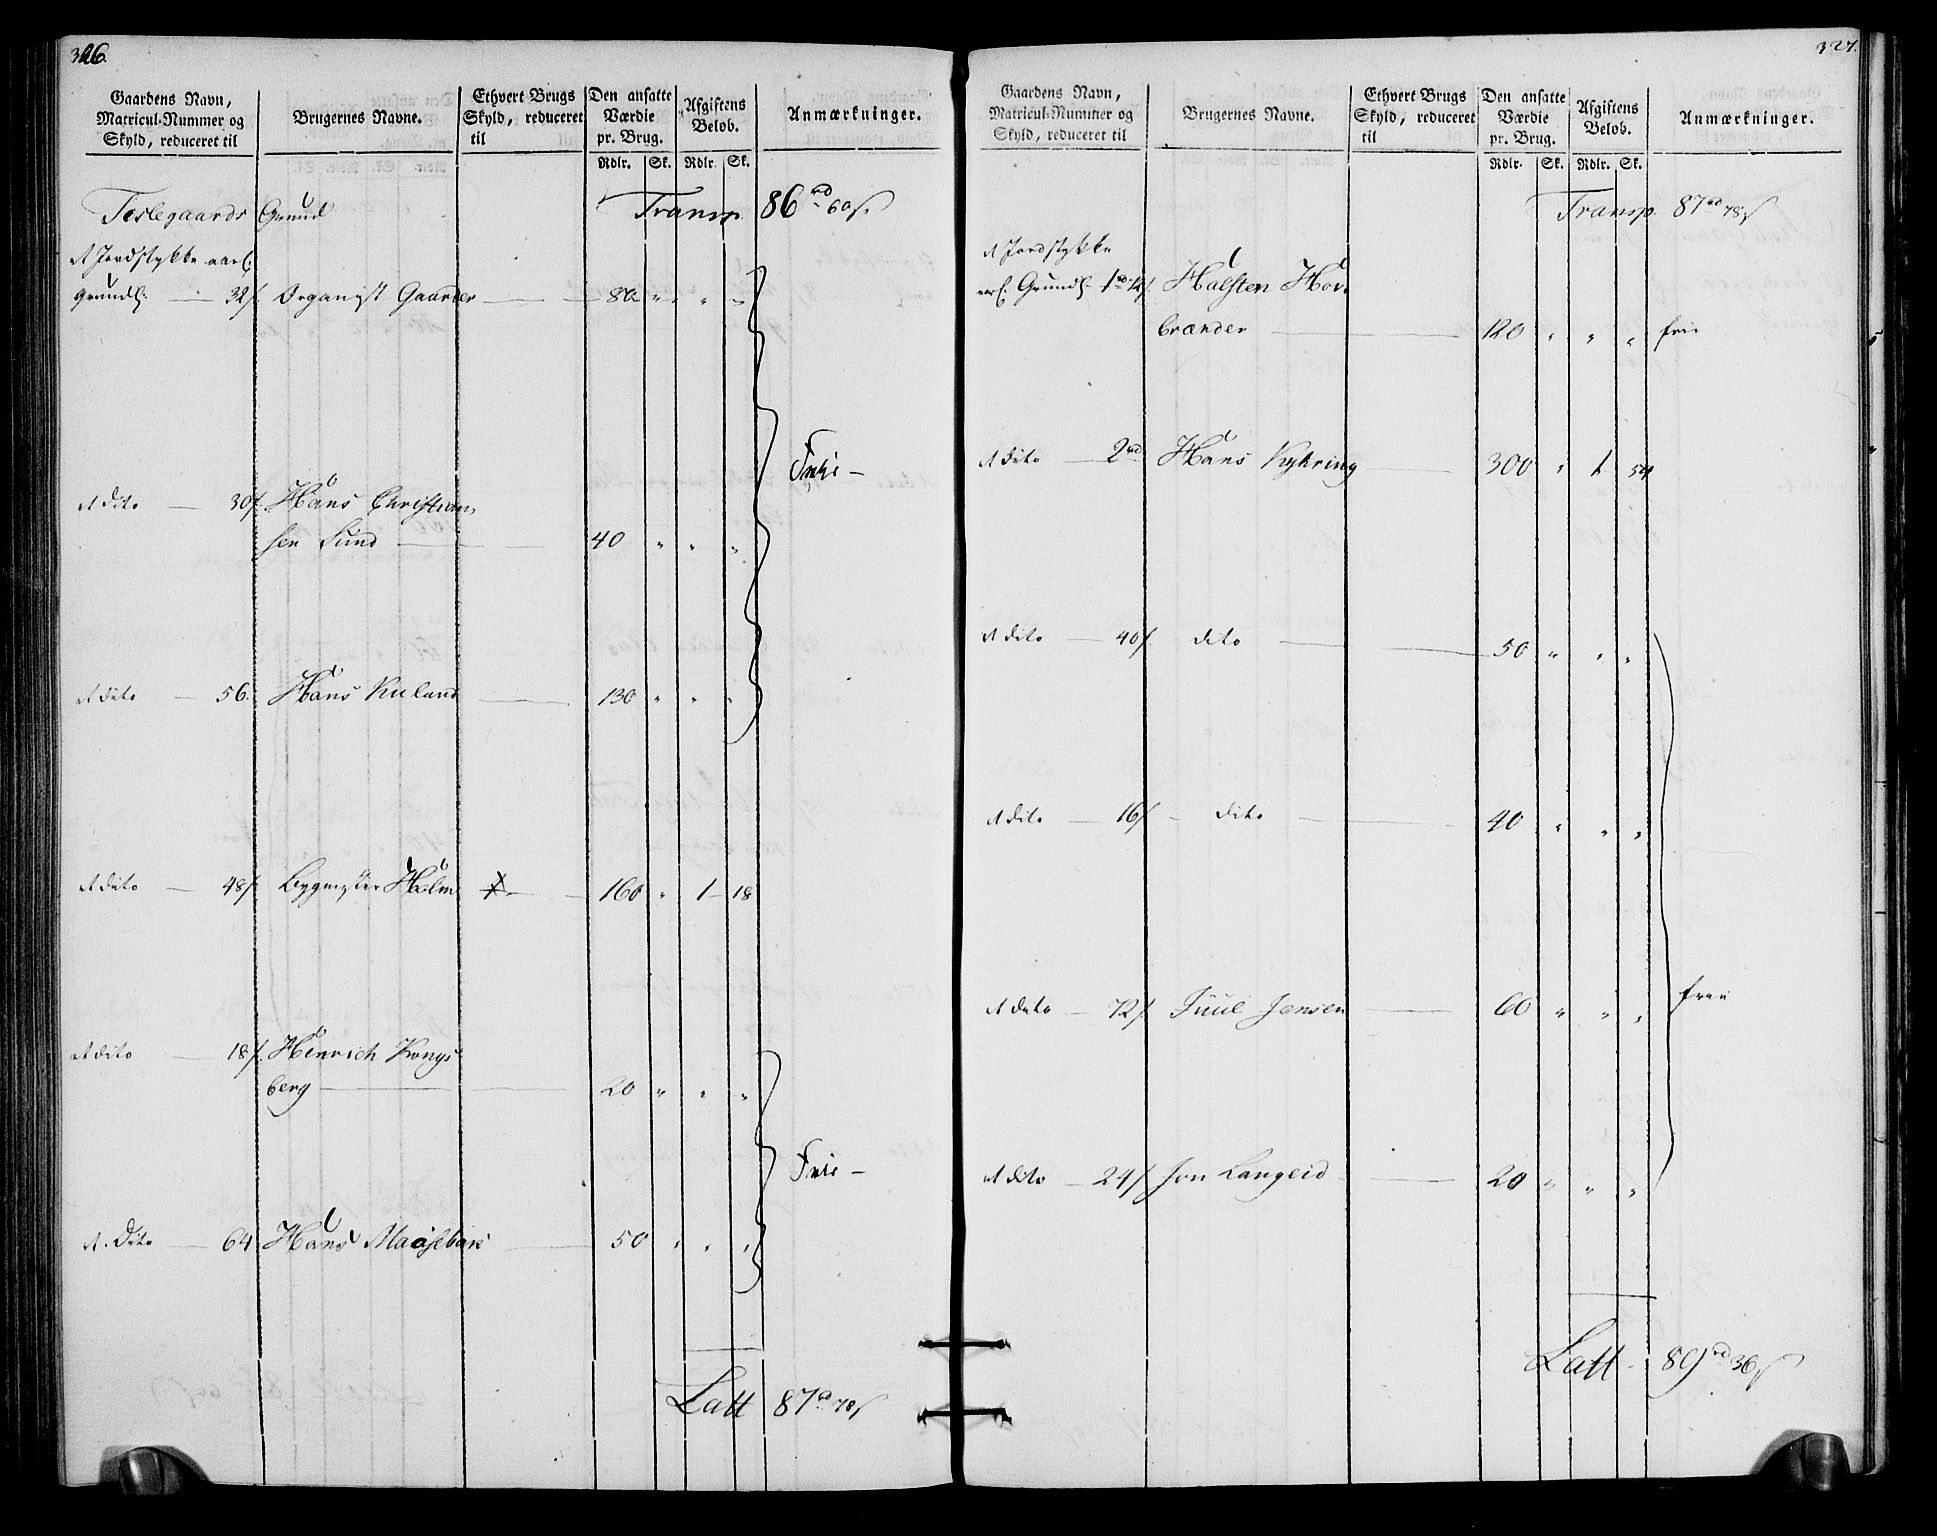 326.
Gaardens Navn,
Matricul-Nummer og
Skyld, reduceret til
Brugernes Navne.
Ethvert Brugs
Skyld, reduceret
til
Den ansatte
Værdie
pr. Brug.
Rdlr. Sk.
Afgiftens
Beløb.
Rdlr. Sk.
Anmærkninger.
Teslegaards Grund Transp. 86 rd 60 s.
1 Jordstykke aarl.
Grundl. 32 s. Organist Gaarder 80 " " "
Frie
1 dito 30 s. Hans Christian-
sen Lund 40 " " "
1 dito 56. Hans Ruland 130 " " "
1 dito 48 s. Bygmester Holm 160 " 1 18
1 dito 18 s. Henrich Kongs-
berg 20 " " "
Frie
1 Dito 64 Hans 50 " " "
Latt 87 rd 78 s
327.
Gaardens Navn,
Matricul-Nummer og
Skyld, reduceret til
Brugernes Navne.
Ethvert Brugs
Skyld, reduceret
til
Den ansatte
Værdie
pr. Brug.
Rdlr. Sk.
Afgiftens
Beløb.
Rdlr. Sk.
Anmærkninger.
Transp. 87 rd 78 s
1 Jordstykke
aarl. Grundl. 1 rd 12 s. Halsten Hol-
brænder 120 " " " frie
1 dito 2 rd Hans Kyhring 300 " 1 54
1 dito 40 s. dito 50 " " "
1 dito 16 s dito 40 " " "
1 dito 72 s. Juul Jensen 60 " " " frie
1 dito 24 s Jon Langeid 20 " " "
Latt 89 rd 36 s